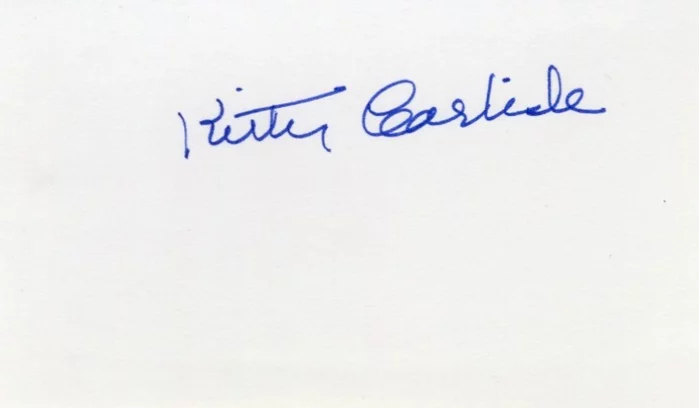 Kitty Carlisle